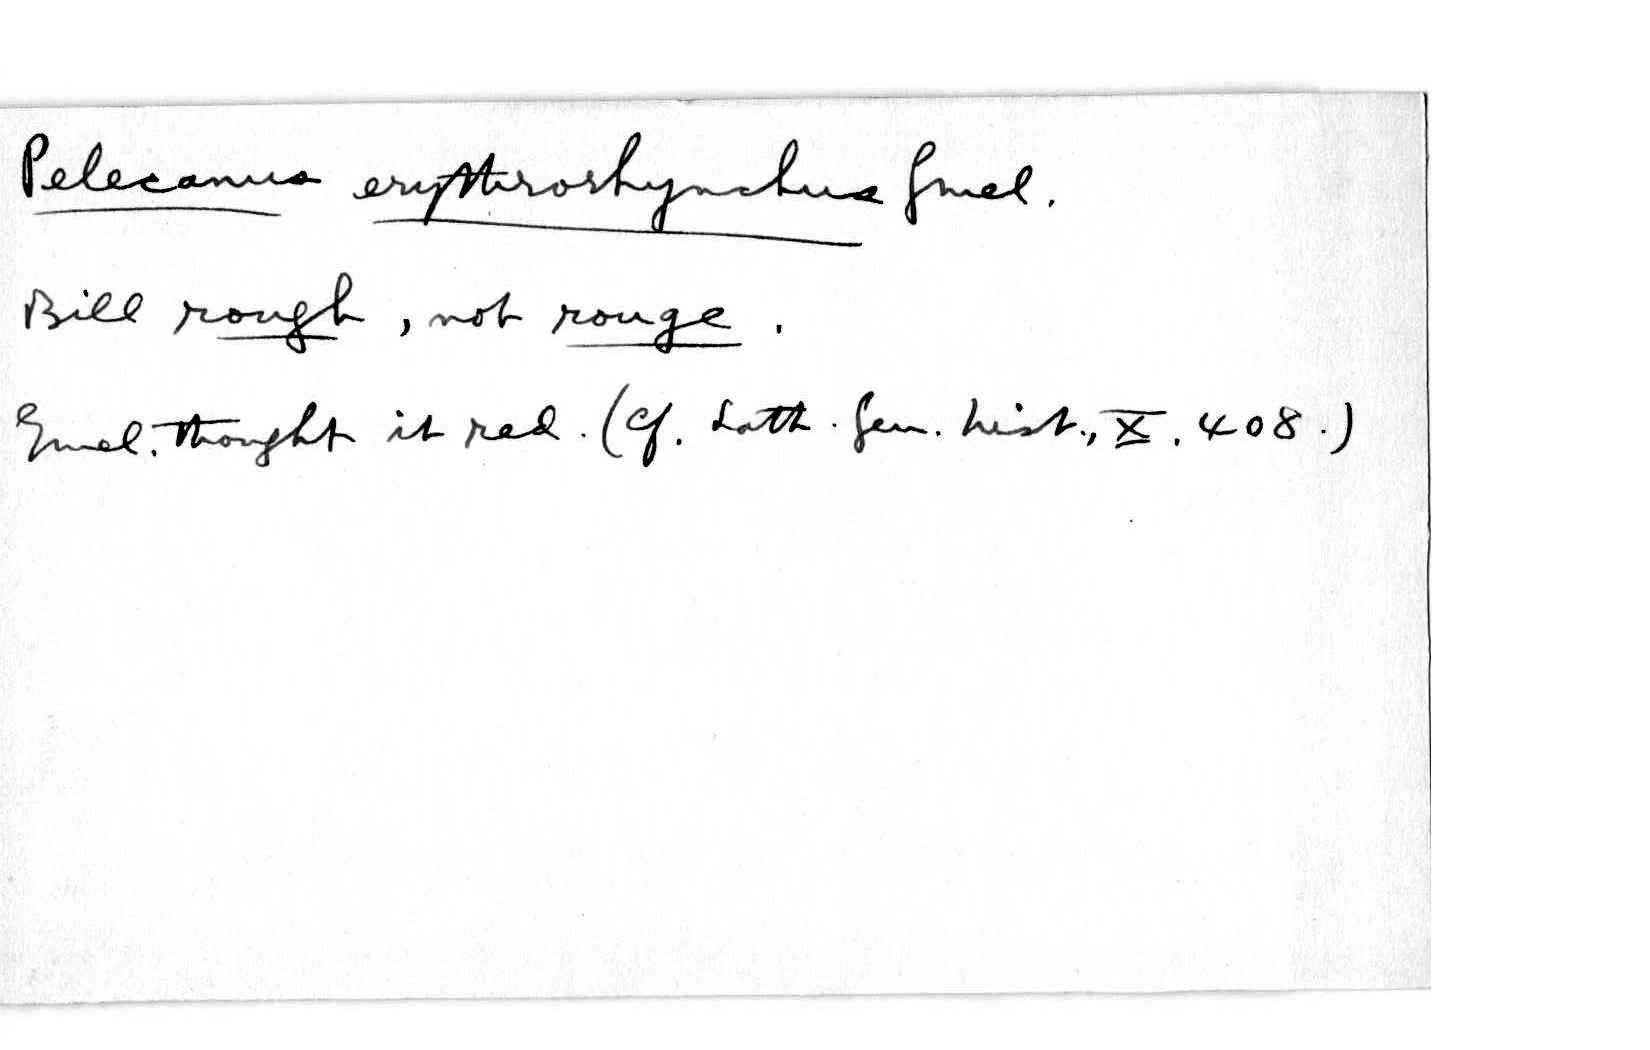 Pelecanus erythrorhynchus Gmel.
Bill rough, not rouge.
Gmel. thought it red. (Cf. Lath. Gen. hist., X. 408.)